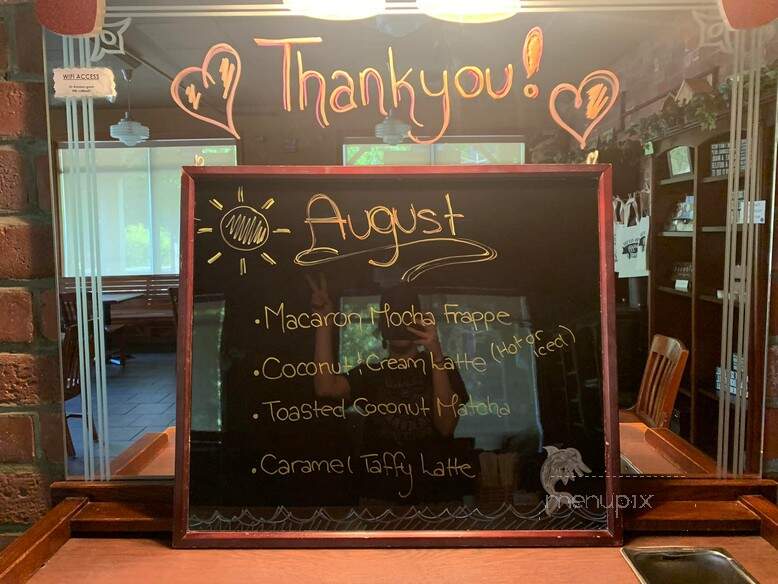 Thank you!
WIFI ACCESS
August
• Macaron Mocha Frappe
• Coconut Cream Latte (Hot or iced)
• Toasted Coconut Matcha
• Caramel Taffy Latte
menupix